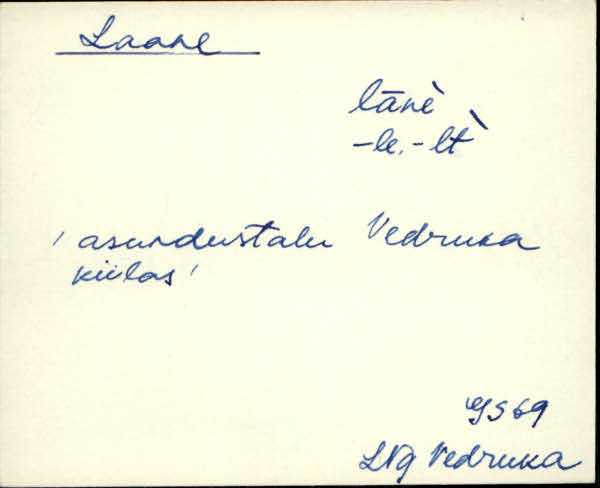 Laane
lānè
-le. -lt̀
'asundustalu Vedruka
külas'
GS 69
LNg Vedruka